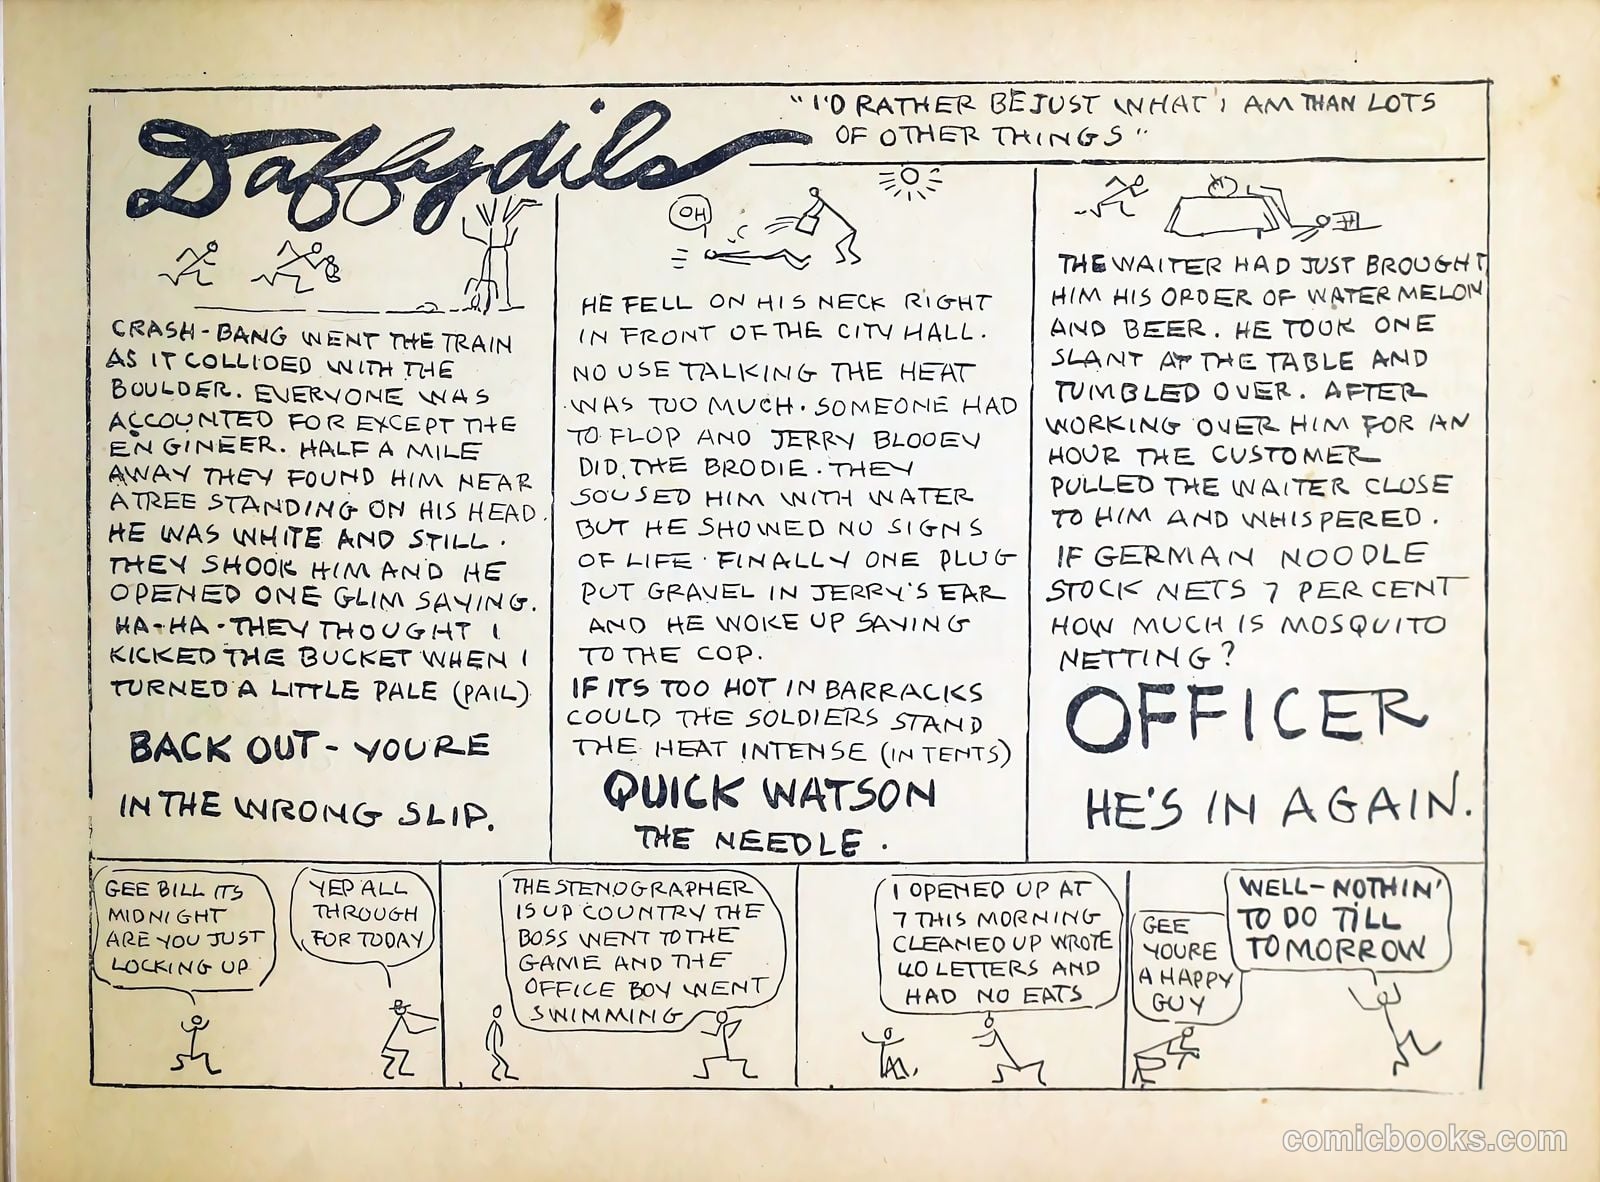 Daffydils
"I'D RATHER BE JUST WHAT I AM THAN LOTS
OF OTHER THINGS"
CRASH-BANG WENT THE TRAIN
AS IT COLLIDED WITH THE
BOULDER. EVERYONE WAS
ACCOUNTED FOR EXCEPT THE
ENGINEER. HALF A MILE
AWAY THEY FOUND HIM NEAR
A TREE STANDING ON HIS HEAD.
HE WAS WHITE AND STILL.
THEY SHOOK HIM AND HE
OPENED ONE GLIM SAYING.
HA-HA-THEY THOUGHT I
KICKED THE BUCKET WHEN I
TURNED A LITTLE PALE (PAIL)
BACK OUT- YOURE
IN THE WRONG SLIP.
OH
HE FELL ON HIS NECK RIGHT
IN FRONT OF THE CITY HALL.
NO USE TALKING THE HEAT
WAS TOO MUCH. SOMEONE HAD
TO FLOP AND JERRY BLOOEY
DID. THE BRODIE. THEY
SOUSED HIM WITH WATER
BUT HE SHOWED NO SIGNS
OF LIFE. FINALLY ONE PLUG
PUT GRAVEL IN JERRY'S EAR
AND HE WOKE UP SAYING
TO THE COP.
IF ITS TOO HOT IN BARRACKS
COULD THE SOLDIERS STAND
THE HEAT INTENSE (IN TENTS)
QUICK WATSON
THE NEEDLE.
THE WAITER HAD JUST BROUGHT
HIM HIS ORDER OF WATERMELON
AND BEER. HE TOOK ONE
SLANT AT THE TABLE AND
TUMBLED OVER. AFTER
WORKING OVER HIM FOR AN
HOUR THE CUSTOMER
PULLED THE WAITER CLOSE
TO HIM AND WHISPERED.
IF GERMAN NOODLE
STOCK NETS 7 PER CENT
HOW MUCH IS MOSQUITO
NETTING?
OFFICER
HE'S IN AGAIN.
GEE BILL ITS
MIDNIGHT
ARE YOU JUST
LOCKING UP
YEP ALL
THROUGH
FOR TODAY
THE STENOGRAPHER
IS UP COUNTRY THE
BOSS WENT TO THE
GAME AND THE
OFFICE BOY WENT
SWIMMING
I OPENED UP AT
7 THIS MORNING
CLEANED UP WROTE
40 LETTERS AND
HAD NO EATS
GEE
YOURE
A HAPPY
GUY
WELL-NOTHIN'
TO DO TILL
TOMORROW
comicbooks.com